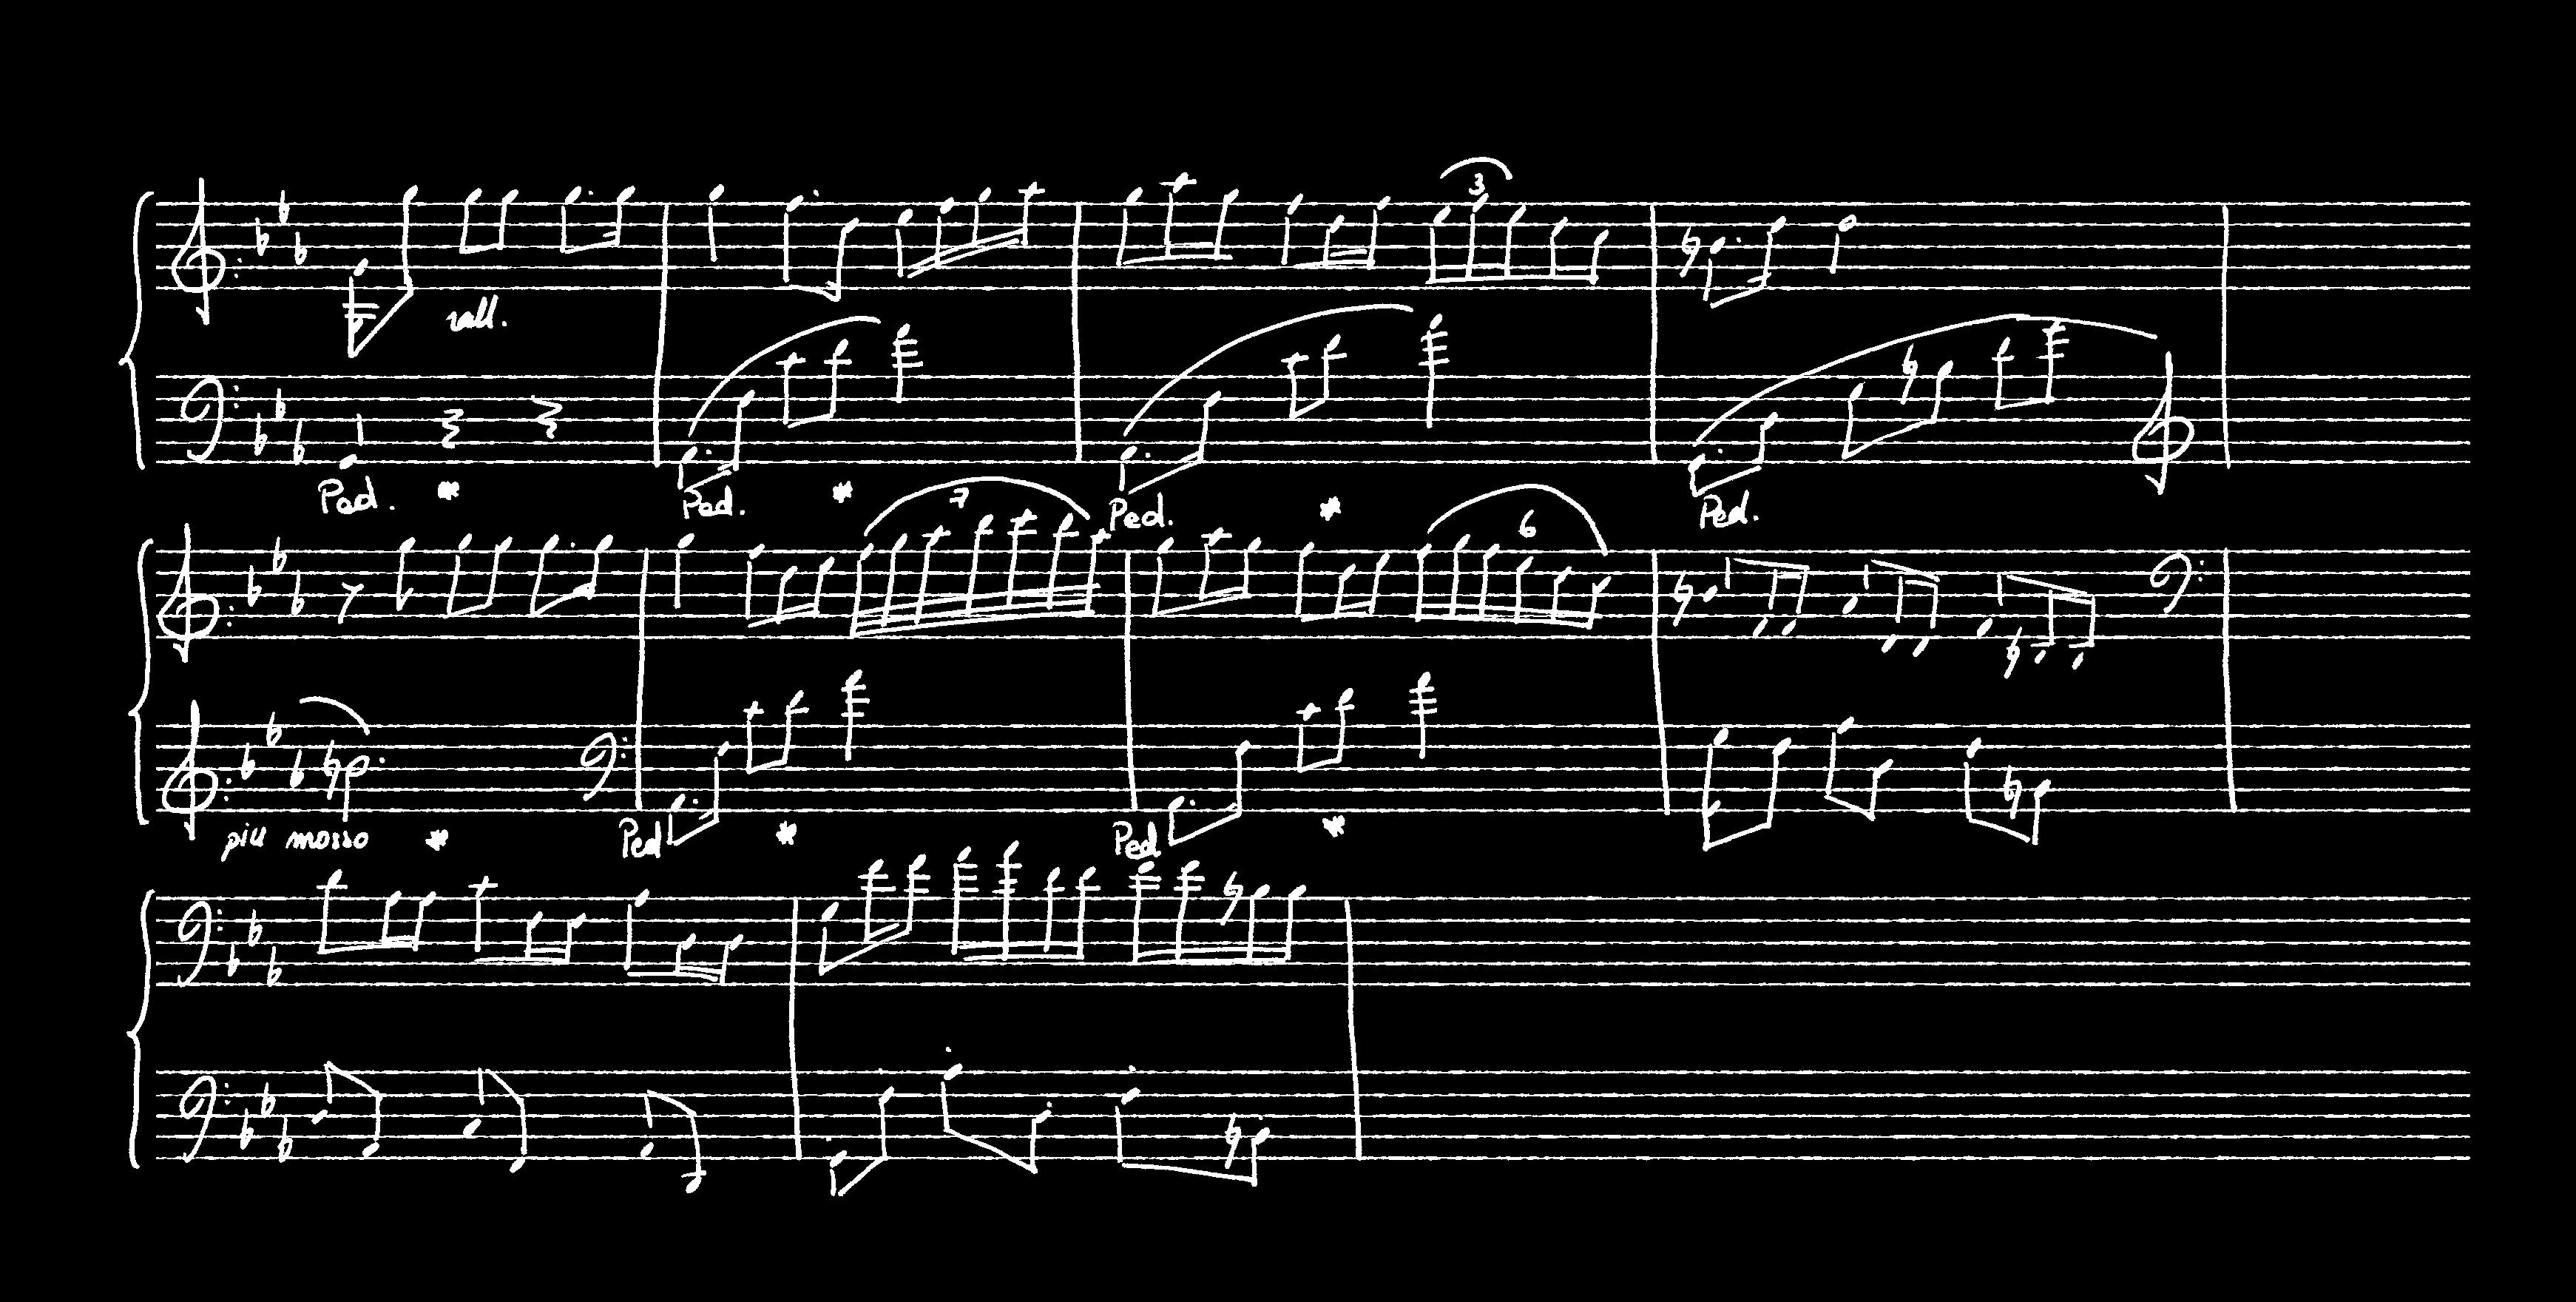 3
rall.
Ped. * Ped. * Ped. * Ped.
7 6
più mosso * Ped * Ped *